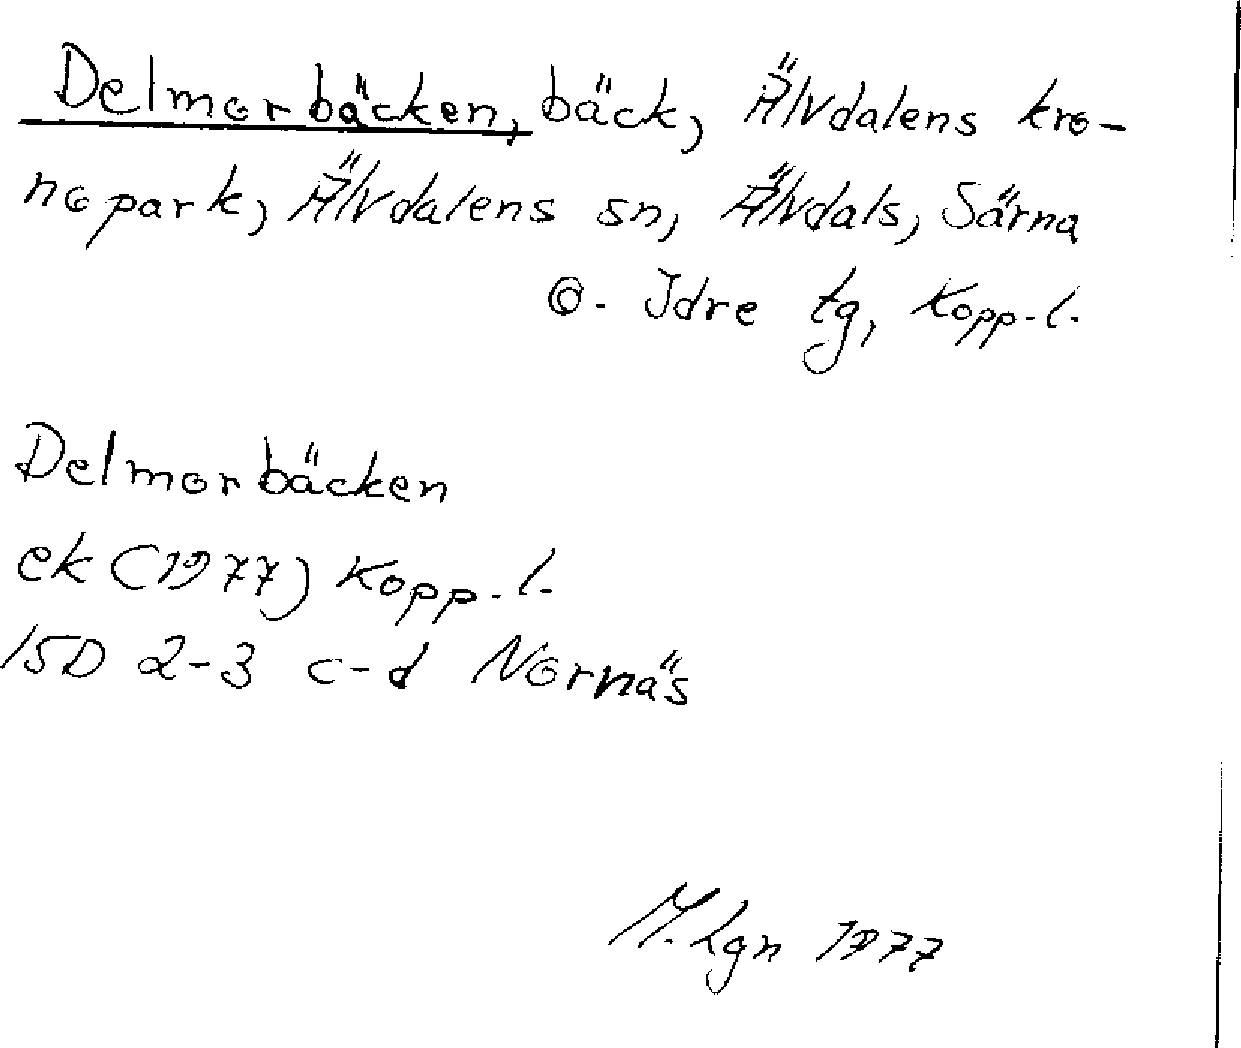 Delmorbäcken, bäck, Älvdalens kro-
nopark, Älvdalens sn, Älvdals, Särna
o. Idre tg, Kopp. l.
Delmorbäcken
ek (1977) Kopp. l.
15D 2-3 c-d Nornäs
M. Lgn 1977